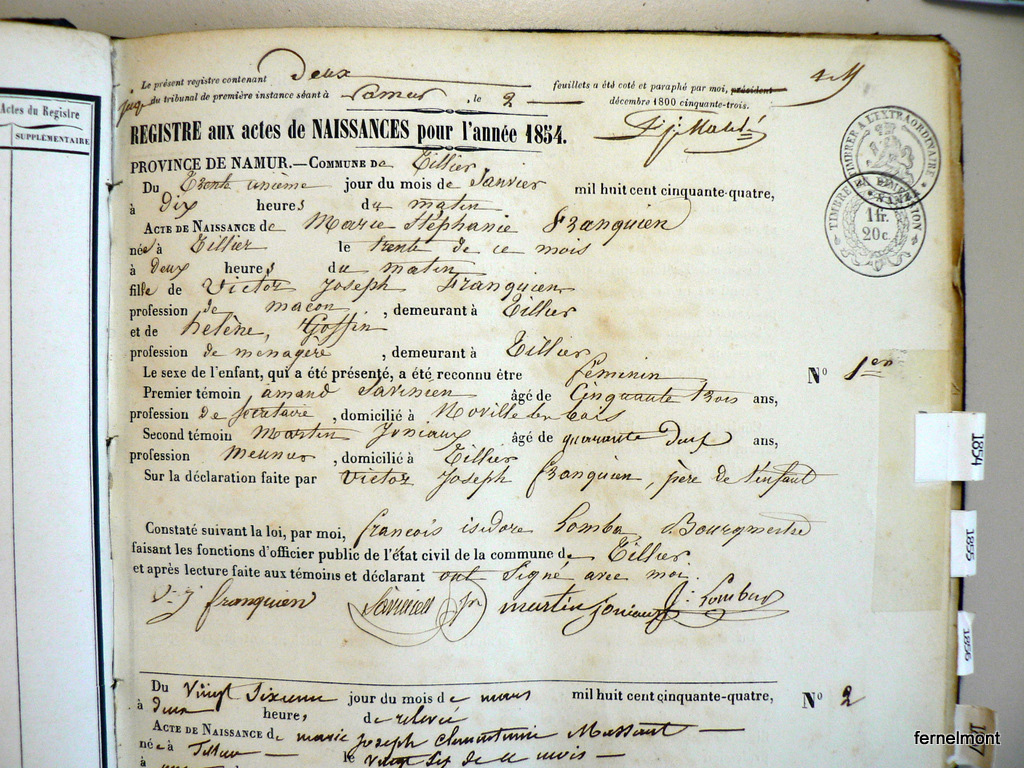 Actes du Registre
SUPPLÉMENTAIRE
Le présent registre contenant Deux feuillets a été coté et paraphé par moi, président
juge du tribunal de première instance séant à Namur, le 2 décembre 1800 cinquante-trois.
REGISTRE aux actes de NAISSANCES pour l'année 1854.
PROVINCE DE NAMUR.—COMMUNE De Tillier
Du Trente unième jour du mois de Janvier mil huit cent cinquante-quatre,
à Dix heures du matin
ACTE DE NAISSANCE de Marie Stéphanie Franquien
née à Tillier le trente de ce mois
à Deux heures du matin
fille de Victor Joseph Franquien
profession de maçon, demeurant à Tillier
et de hélène, Goffin
profession de ménagère, demeurant à Tillier
Le sexe de l'enfant, qui a été présenté, a été reconnu être féminin
N° 1er
Premier témoin amand Savinien âgé de Cinquante trois ans,
profession de secrétaire, domicilié à Noville les bois
Second témoin Martin Joniaux âgé de quarante Deux ans,
profession Meunier, domicilié à Tillier
Sur la déclaration faite par Victor Joseph franquien, père de l'enfant
Constaté suivant la loi, par moi, françois isidore Lomba Bourgmestre
faisant les fonctions d'officier public de l'état civil de la commune de Tillier
et après lecture faite aux témoins et déclarant ont signé avec moi.
V. J franquien Savinien martin Joniaux
TIMBRER A L'EXTRAORDINAIRE
1 fr.
20 c.
Du Vingt Sixième jour du mois de mars mil huit cent cinquante-quatre,
N° 2
à deux heures, de relevée
ACTE DE NAISSANCE de marie joseph Clémentine Massaut
née à Tillier le vingt six de ce mois
1854
1855
1856
fernelmont